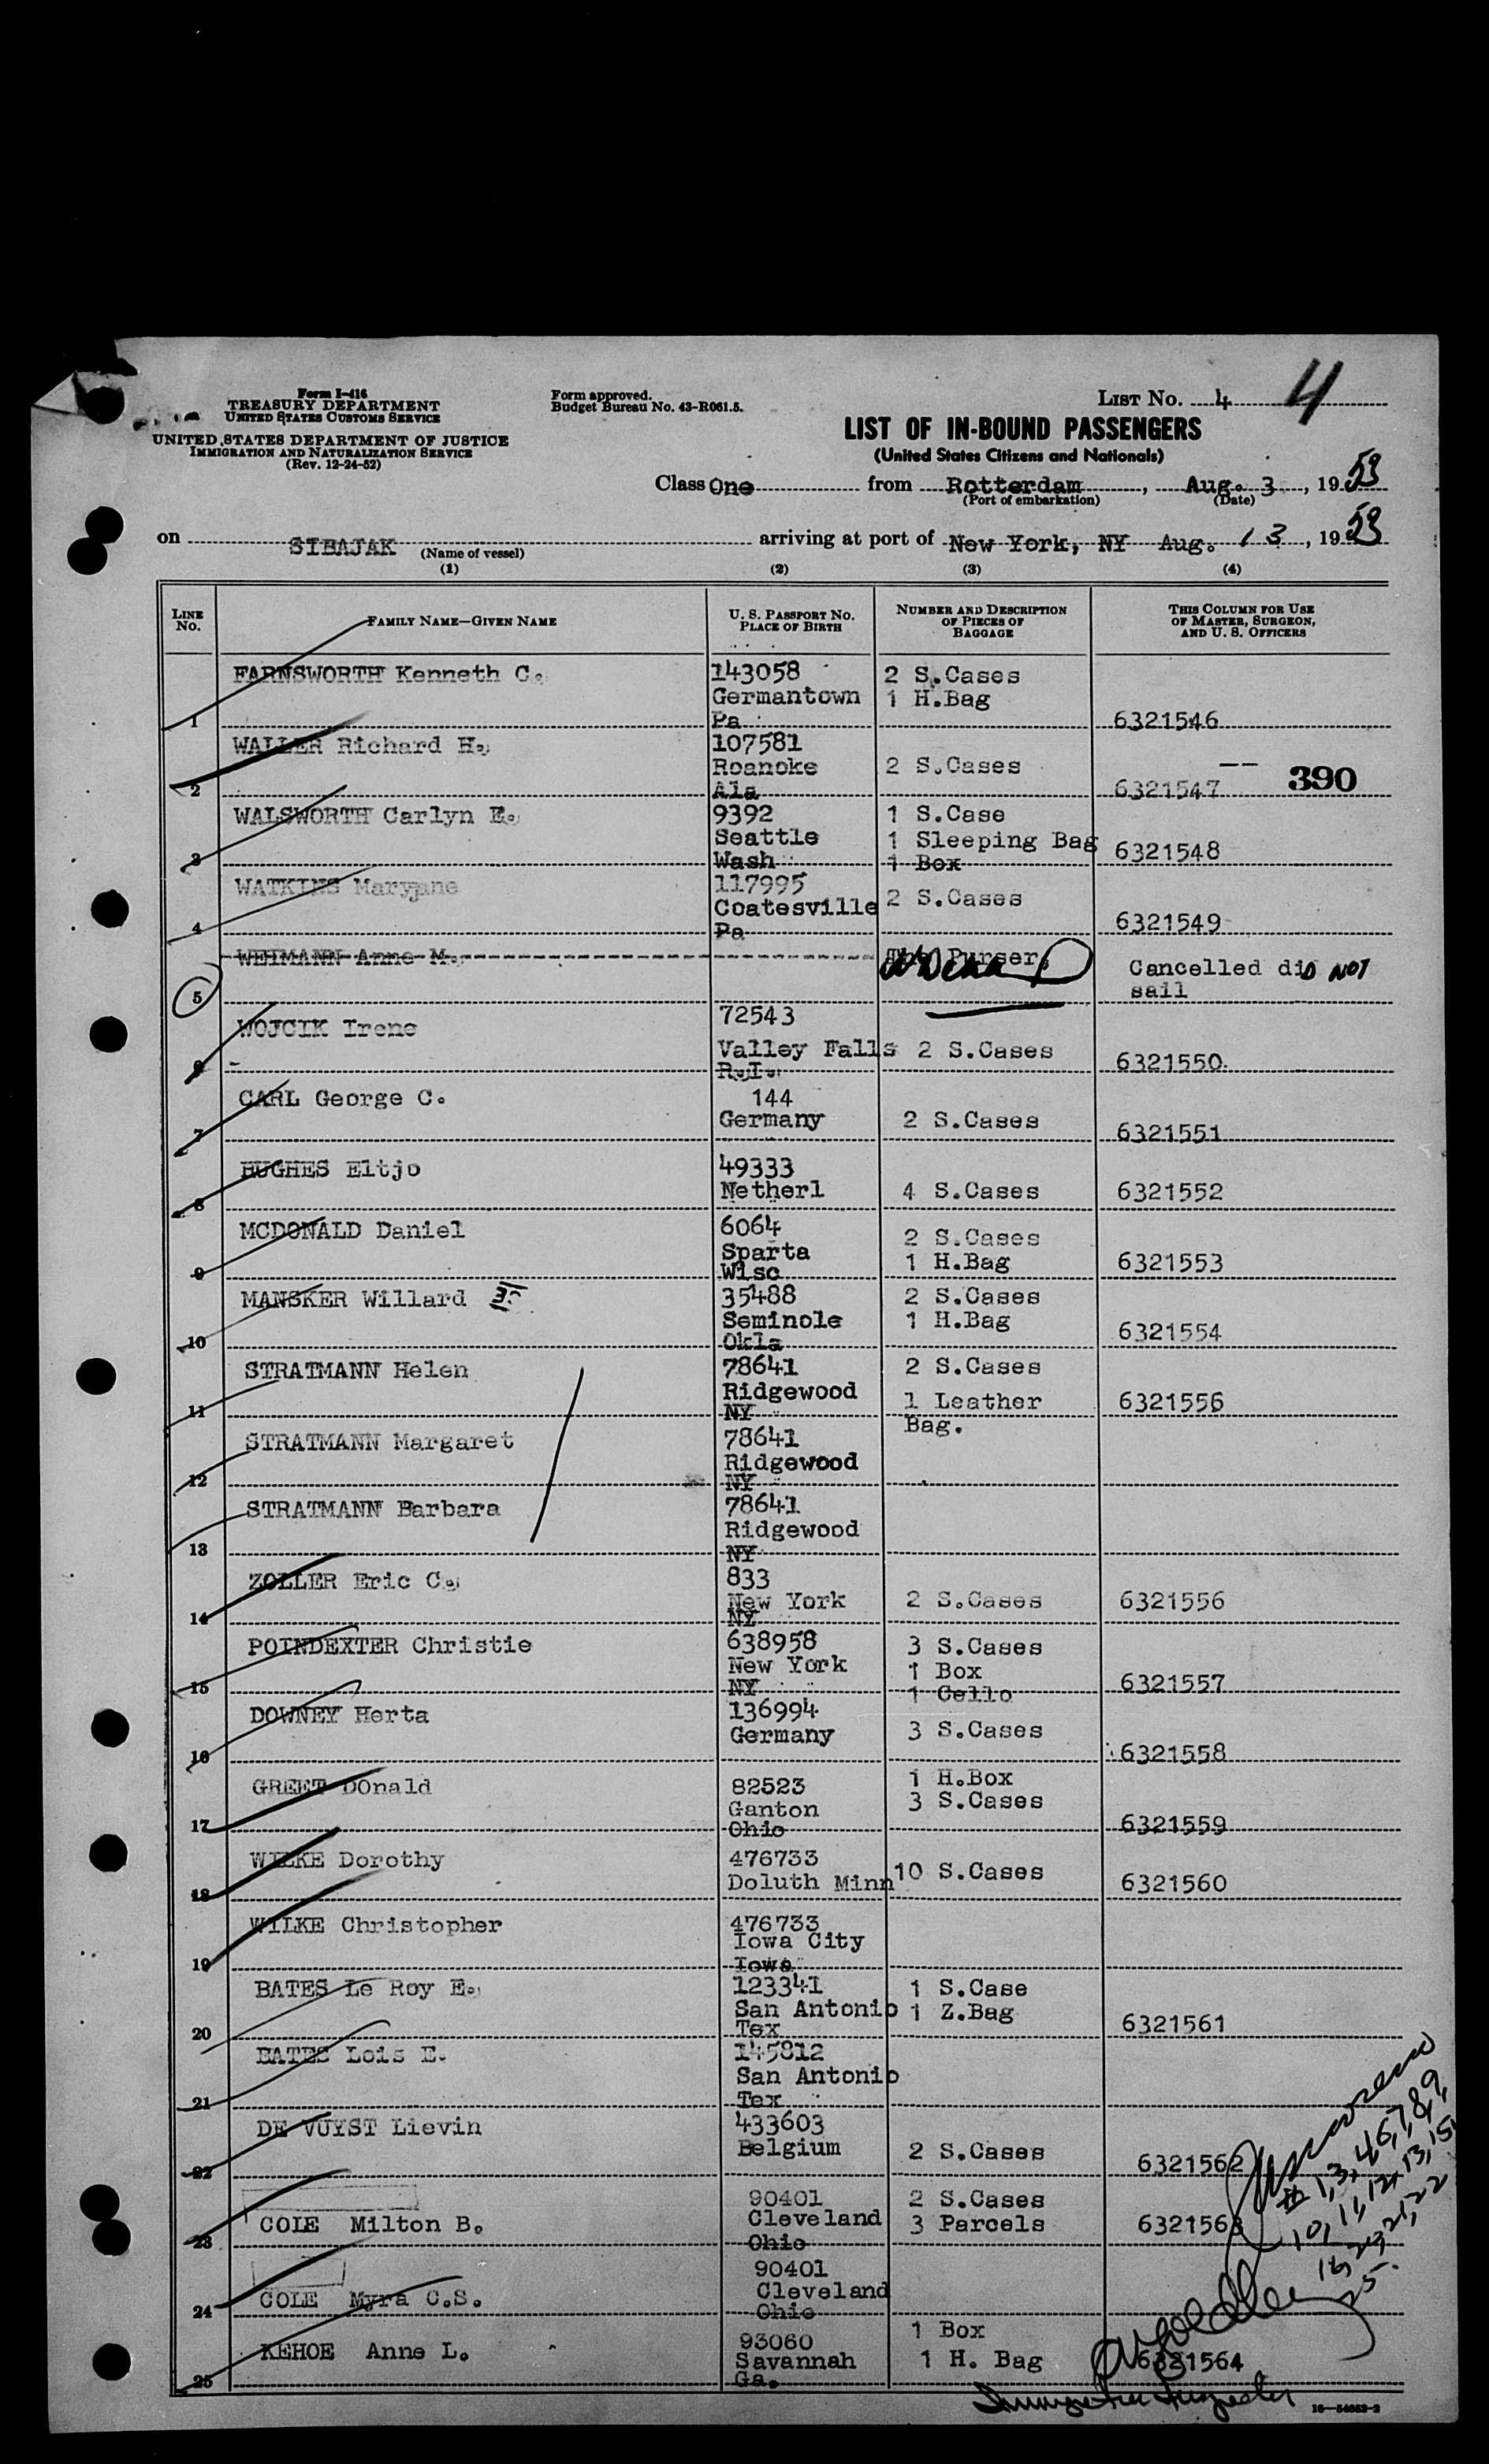 Form I-416
TREASURY DEPARTMENT
UNITED STATES CUSTOMS SERVICE
UNITED STATES DEPARTMENT OF JUSTICE
IMMIGRATION AND NATURALIZATION SERVICE
(Rev. 12-24-52)
Form approved.
Budget Bureau No. 43-R061.5.
LIST NO. 4 4
LIST OF IN-BOUND PASSENGERS
(United States Citizens and Nationals)
Class One from Rotterdam, Aug. 3, 1953
(Port of embarkation) (Date)
on SIBAJAK arriving at port of New York, NY Aug. 13, 1953
(Name of vessel)
(1) (2) (3) (4)
LINE NO. FAMILY NAME—GIVEN NAME U. S. PASSPORT NO. PLACE OF BIRTH NUMBER AND DESCRIPTION OF PIECES OF BAGGAGE THIS COLUMN FOR USE OF MASTER, SURGEON, AND U. S. OFFICERS
FARNSWORTH Kenneth C. 143058 2 S.Cases
Germantown 1 H.Bag
1 Pa 6321546
WALLER Richard H. 107581
Roanoke 2 S.Cases
2 Ala 6321547 -- 390
WALSWORTH Carlyn E. 9392 1 S.Case
Seattle 1 Sleeping Bag
3 Wash 1 Box 6321548
WATKINS Maryane 117995
Coatesville 2 S.Cases
4 Pa 6321549
WEIMANN Anne M. The Purser, Cancelled diD NOT
5 sail
WOJCIK Irene 72543
Valley Falls 2 S.Cases
6 R.I. 6321550
CARL George C. 144
Germany 2 S.Cases
7 6321551
HUGHES Eltjo 49333
8 Netherl 4 S.Cases 6321552
MCDONALD Daniel 6064 2 S.Cases
Sparta 1 H.Bag
9 Wisc 6321553
MANSKER Willard 35488 2 S.Cases
Seminole 1 H.Bag
10 Okla 6321554
STRATMANN Helen 78641 2 S.Cases
Ridgewood 1 Leather
11 NY Bag. 6321556
STRATMANN Margaret 78641
Ridgewood
12 NY
STRATMANN Barbara 78641
Ridgewood
13 NY
ZOLLER Eric C. 833
New York 2 S.Cases 6321556
14 NY
POINDEXTER Christie 638958 3 S.Cases
New York 1 Box
15 NY 1 Cello 6321557
DOWNEY Herta 136994
Germany 3 S.Cases
16 6321558
GREET DOnald 82523 1 H.Box
Ganton 3 S.Cases
17 Ohio 6321559
WILKE Dorothy 476733
18 Doluth Minn 10 S.Cases 6321560
WILKE Christopher 476733
Iowa City
19 Iowa
BATES Le Roy E. 123341 1 S.Case
San Antonio 1 Z.Bag
20 Tex 6321561
BATES Lois E. 145812
San Antonio
21 Tex
DE VUYST Lievin 433603
Belgium 2 S.Cases 6321562
22
90401 2 S.Cases
COLE Milton B. Cleveland 3 Parcels 6321563
23 Ohio
90401
Cleveland
24 COLE Myra C.S. Ohio
1 Box
KEHOE Anne L. 93060 1 H. Bag 6321564
Savannah
25 Ga.
# 1, 3, 4, 6, 7, 8, 9,
10, 11, 12, 13, 15,
16, 20, 21, 22
25.
16—54653-2